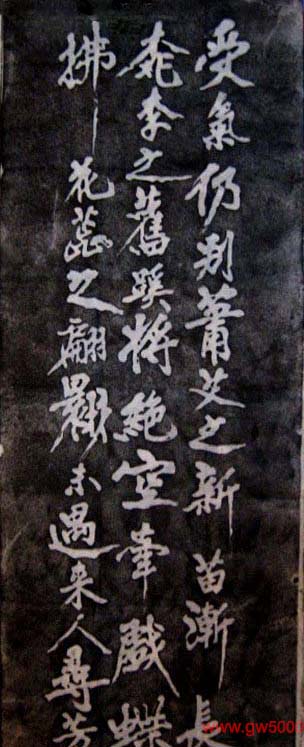 受氣仍判蕭艾之新苗漸長
桃李之舊蹊將絶空牽戲蝶
拂花蕊之翩翾未遇来人尋芳
www.gw5000